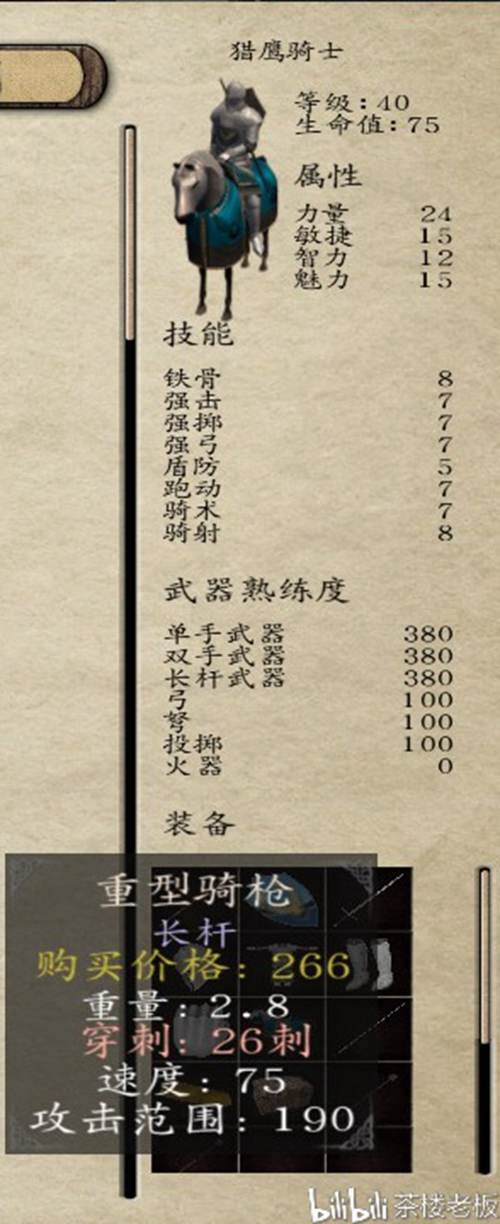 猎鹰骑士
等级：40
生命值：75
属性
力量 24
敏捷 15
智力 12
魅力 15
技能
铁骨 8
强击 7
强掷 7
强弓 7
盾防 5
跑动 7
骑术 7
骑射 8
武器熟练度
单手武器 380
双手武器 380
长杆武器 380
弓 100
弩 100
投掷 100
火器 0
装备
重型骑枪
长杆
购买价格：266
重量：2.8
穿刺：26刺
速度：75
攻击范围：190
bilibili 茶楼老板